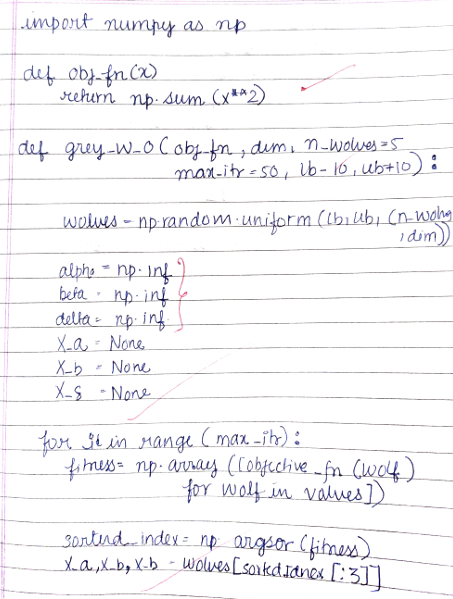 import numpy as np
def obj_fn(x)
return np.sum(x**2)
def grey_W_O(obj_fn, dim, n_wolves=5
max_itr=50, lb-10, ub+10):
wolves = np.random.uniform(lb, ub, (n_wolves
, dim))
alpha = np.inf
beta = np.inf
delta = np.inf
X_a = None
X_b = None
X_δ = None
for it in range(max_itr):
fitness = np.array([objective_fn(wolf)
for wolf in values])
sorterd_index = np argsor(fitness)
X_a, X_b, X_b = wolves[sortedIdnex[:3]]